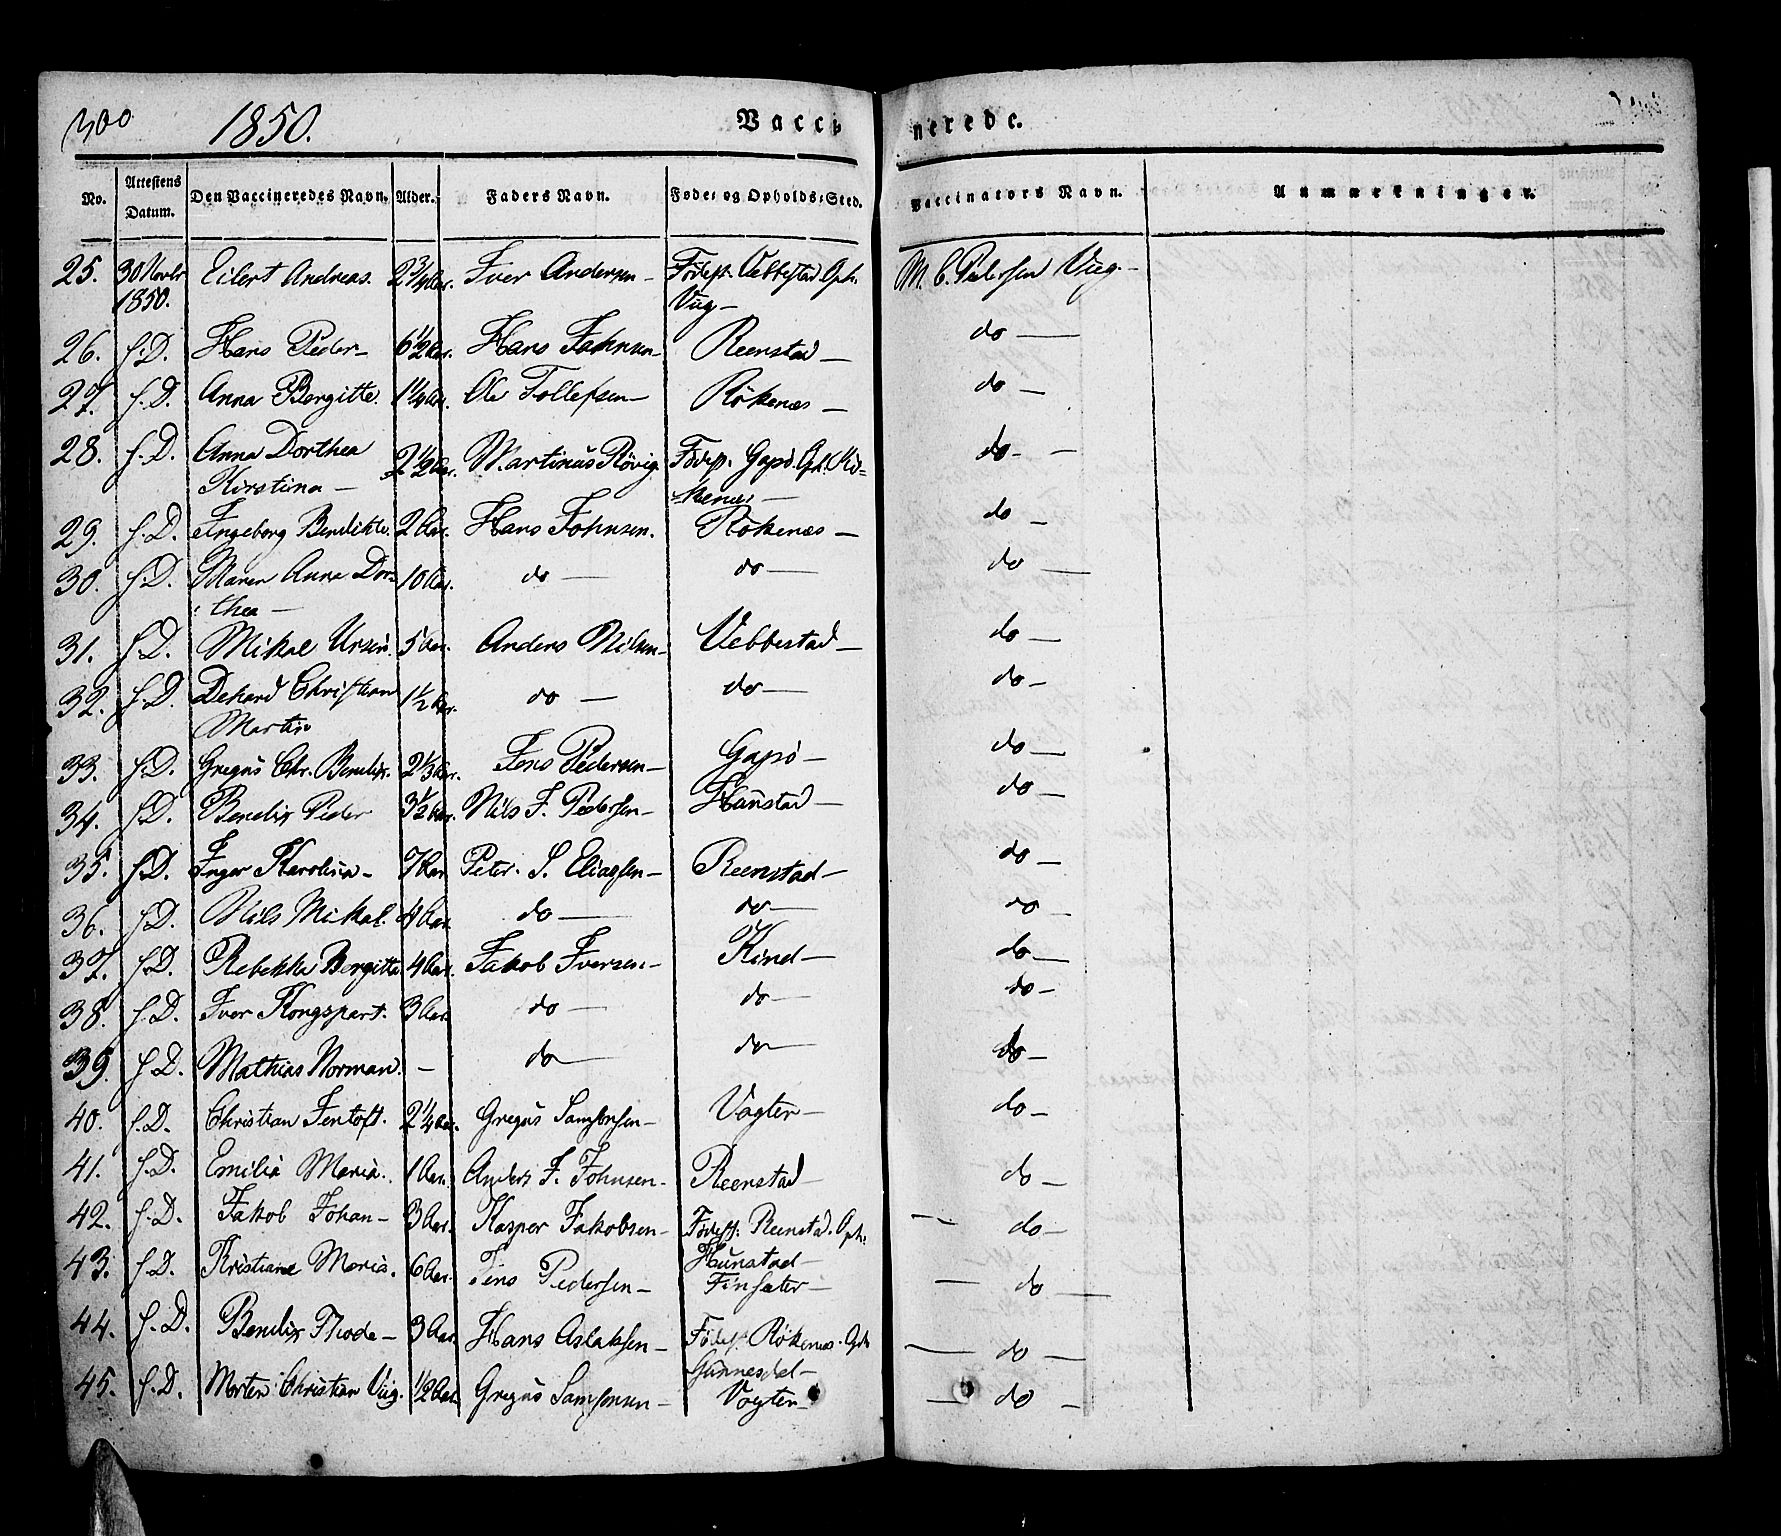 300 1850. Vaccinerede.
No. Attestens Datum. Den Vaccineredes Navn. Alder. Faders Navn. Føde- og Opholds-Sted. Vaccinators Navn. Anmærkninger.
25. 30 Novbr 1850. Eilert Andreas. 2 3/4 Aar. Iver Andersen — Födest. Vebbestad. Oph. Viig — M. C. Petersen Viig. —
26. s. D. Hans Peder — 6 1/2 Aar. Hans Johnsen — Reenstad — do —
27. s. D. Anna Bergitte. 1 1/4 Aar. Ole Tollefsen — Rökenæs — do —
28. s. D. Anna Dorthea Kirstina — 2 1/2 Aar. Martinus Rövig. Födest. Gapö. Oph. Rökenæs — do —
29. s. D. Ingeborg Bendikte. 2 Aar. Hans Johnsen. Rökenæs — do —
30. s. D. Maren Anna Dorthea — 10 Aar. do — do — do —
31. s. D. Mikal Ursin. 5 Aar. Anders Nilsen — Vebbestad — do —
32. s. D. Dekard Christian Martin 1 1/2 Aar. do — do — do —
33. s. D. Gregus Chr. Bendix. 2 1/3 Aar. Jens Pedersen — Gapö — do —
34. s. D. Bendix Peder 3 1/2 Aar. Nils J. Pedersen — Haustad — do —
35. s. D. Inger Karolina — 7 Aar Peter S. Eliassen — Reenstad — do —
36. s. D. Nils Mikal. 4 Aar. do — do — do —
37. s. D. Rebekka Bergitta 4 Aar. Jakob Iversen — Kind — do —
38. s. D. Iver Kongspart. 3 Aar. do — do — do —
39. s. D. Mathias Norman. — do — do — do —
40. s. D. Christian Jentoft. 2 1/4 Aar. Gregus Samsonsen — Vogter — do —
41. s. D. Emilia Maria. 1 Aar. Anders J. Johnsen — Reenstad — do —
42. s. D. Jakob Johan — 3 Aar. Kasper Jakobsen — Födest. Reenstad. Oph. Haunstad — — do —
43. s. D. Kristiane Maria. 6 Aar. Jens Pedersen — Finsæter — — do —
44. s. D. Bendix Thode — 3 Aar. Hans Aslaksen — Födest. Rökenæs. Oph. Gunnesdal — — do —
45. s. D. Morten Christian Viig. 1/2 Aar. Gregus Samsonsen — Vogter — — do —